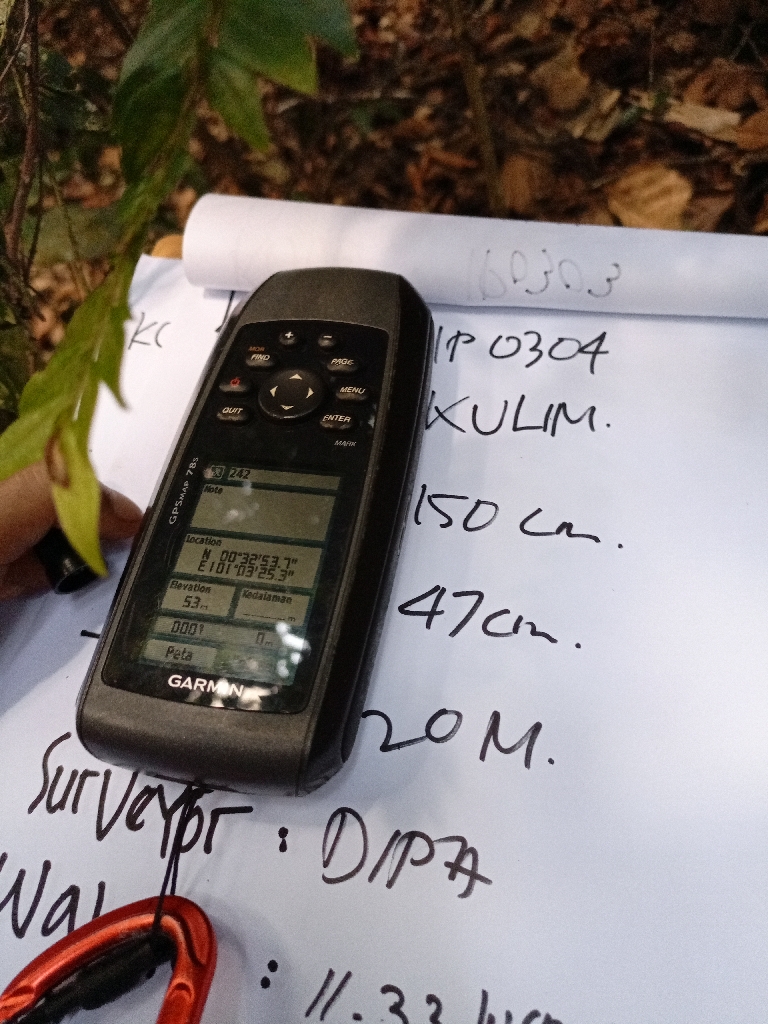 160303
KC
IP 0304
KULIM.
150 cm.
47 cm.
20 M.
Surveyor : DIPA
: 11.33
MOB
FIND
PAGE
MENU
QUIT
ENTER
MARK
GPSMAP 78s
242
Note
Location
N 00°32'53.7"
E101°03'25.3"
Elevation
53m
Kedalaman
m
0001
0m
Peta
GARMIN